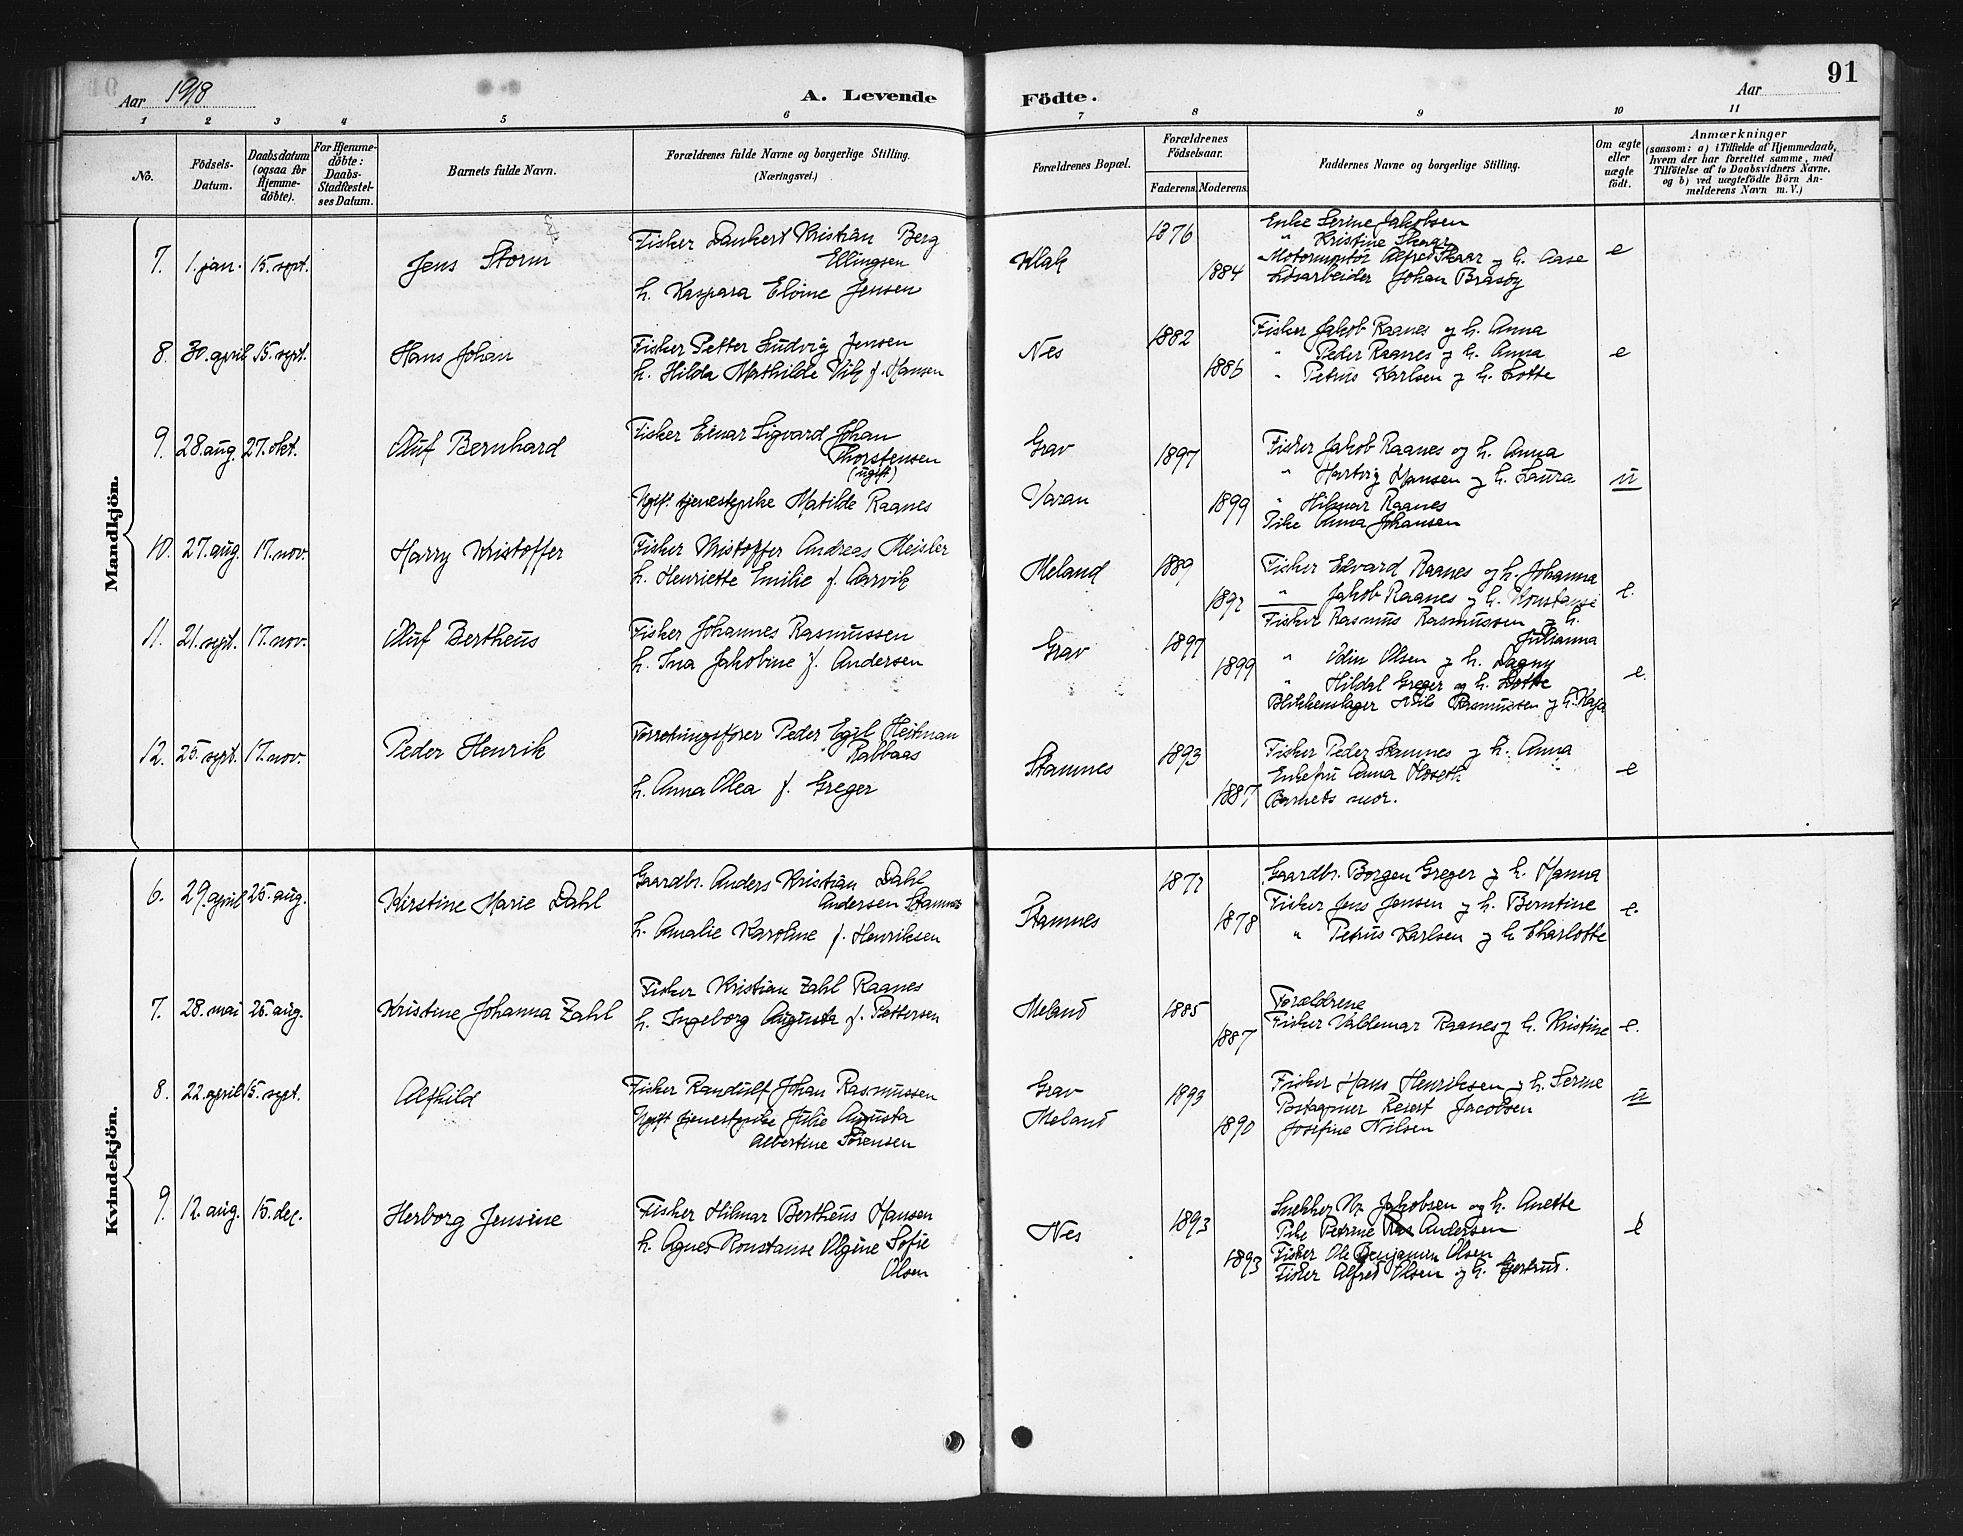 Aar 1918
A. Levende
Födte.
Aar
91
1 2 3 4 5 6 7 8 9 10 11
No.
Födsels-Datum.
Daabsdatum (ogsaa for Hjemme-döbte).
For Hjemme-döbte: Daabs-Stadfæstel-ses Datum.
Barnets fulde Navn.
Forældrenes fulde Navne og borgerlige Stilling. (Næringsvei.)
Forældrenes Bopæl.
Forældrenes Födselsaar.
Faderens. Moderens.
Faddernes Navne og borgerlige Stilling.
Om ægte eller uægte födt.
Anmærkninger
(saasom: a) i Tilfælde af Hjemmedaab,
hvem der har forrettet samme, med
Tilföielse af to Daabsvidners Navne.
og b) ved uægtefödte Börn An-
melderens Navn m.V.)
Mandkjön.
7. 1. jan. 15. sept. Jens Storm
Fisker Dankert Kristian Berg
Ellingsen
h. Kaspara Elvine Jensen
Klak
1876
1884
Enke Serine Jakobsen
" Kristine Skaar
Motormontör Alfred Skaar og h. Aase
Lösarbeider Johan Brasöy
e
8. 30. april 15. sept. Hans Johan
Fisker Petter Ludvig Jensen
h. Hilda Mathilde Vik f. Hansen
Nes
1882
1886
Fisker Jakob Raanes og h. Anna
" Peder Raanes og h. Anna
" Petrus Karlsen og h. Lotte
e
9. 28. aug. 27. okt. Oluf Bernhard
Fisker Einar Sigvard Johan
Thorstensen
(ugift)
Ugift tjenestepike Matilde Raanes
Grav
Varan
1897
1899
Fisker Jakob Raanes og h. Anna
" Hartvig Hansen og h. Laura
" Hilmar Raanes
Pike Anna Johansen
u
10. 27. aug. 17. nov. Harry Kristoffer
Fisker Kristoffer Andreas Meisler
h. Henriette Emilie f. Aarvik
Meland
1889
1892
Fisker Edvard Raanes og h. Johanna
" Jakob Raanes og h. Konstanse
e.
11. 21. sept. 17. nov. Oluf Bertheus
Fisker Johannes Rasmussen
h. Ina Jakobine f. Andersen
Grav
1897
1899
Fisker Rasmus Rasmussen og h.
Julianna
" Odin Olsen og h. Dagny
" Hildal Greger og h. Lotte
Blikkenslager Nils Rasmussen og h. Kaja
e.
12. 25. sept. 17. nov. Peder Henrik
Forretningsförer Peder Egil Heitman
Rabbaas
h. Anna Olea f. Greger
Stamnes
1893
1887
Fisker Peder Stamnes og h. Anna
Enkefru Anna
Barnets mor.
e
Kvindekjön.
6. 29. april 25. aug. Kirstine Marie Dahl
Gaardbr. Anders Kristian Dahl
Andersen Stamnes
h. Amalie Karoline f. Henriksen
Stamnes
1872
1878
Gaardbr. Borgen Greger og h. Hanna
Fisker Jens Jensen og h. Berntine
" Petrus Karlsen og h. Charlotte
e.
7. 28. mai 25. aug. Kristine Johanna Zahl
Fisker Kristian Zahl Raanes
h. Ingeborg Augusta f. Pettersen
Meland
1885
1887
Forældrene
Fisker Valdemar Raanes og h. Kristine
e.
8. 22. april 15. sept. Alfhild
Fisker Randulf Johan Rasmussen
Ugift tjenestepike Julie Augusta
Albertine Sörensen
Grav
Meland
1893
1890
Fisker Hans Henriksen og h. Serine
Postaapner Jacobsen
Josefine Nilsen
u
9. 12. aug. 15. dec. Herborg Jensine
Fisker Hilmar Bertheus Hansen
h. Agnes Konstanse Olgine Sofie
Olsen
Nes
1893
1893
Snekker Jakobsen og h. Anette
Pike Petrine Andersen
Fisker Ole Benjamin Olsen
Fisker Alfred Olsen og h. Gjertrud.
e